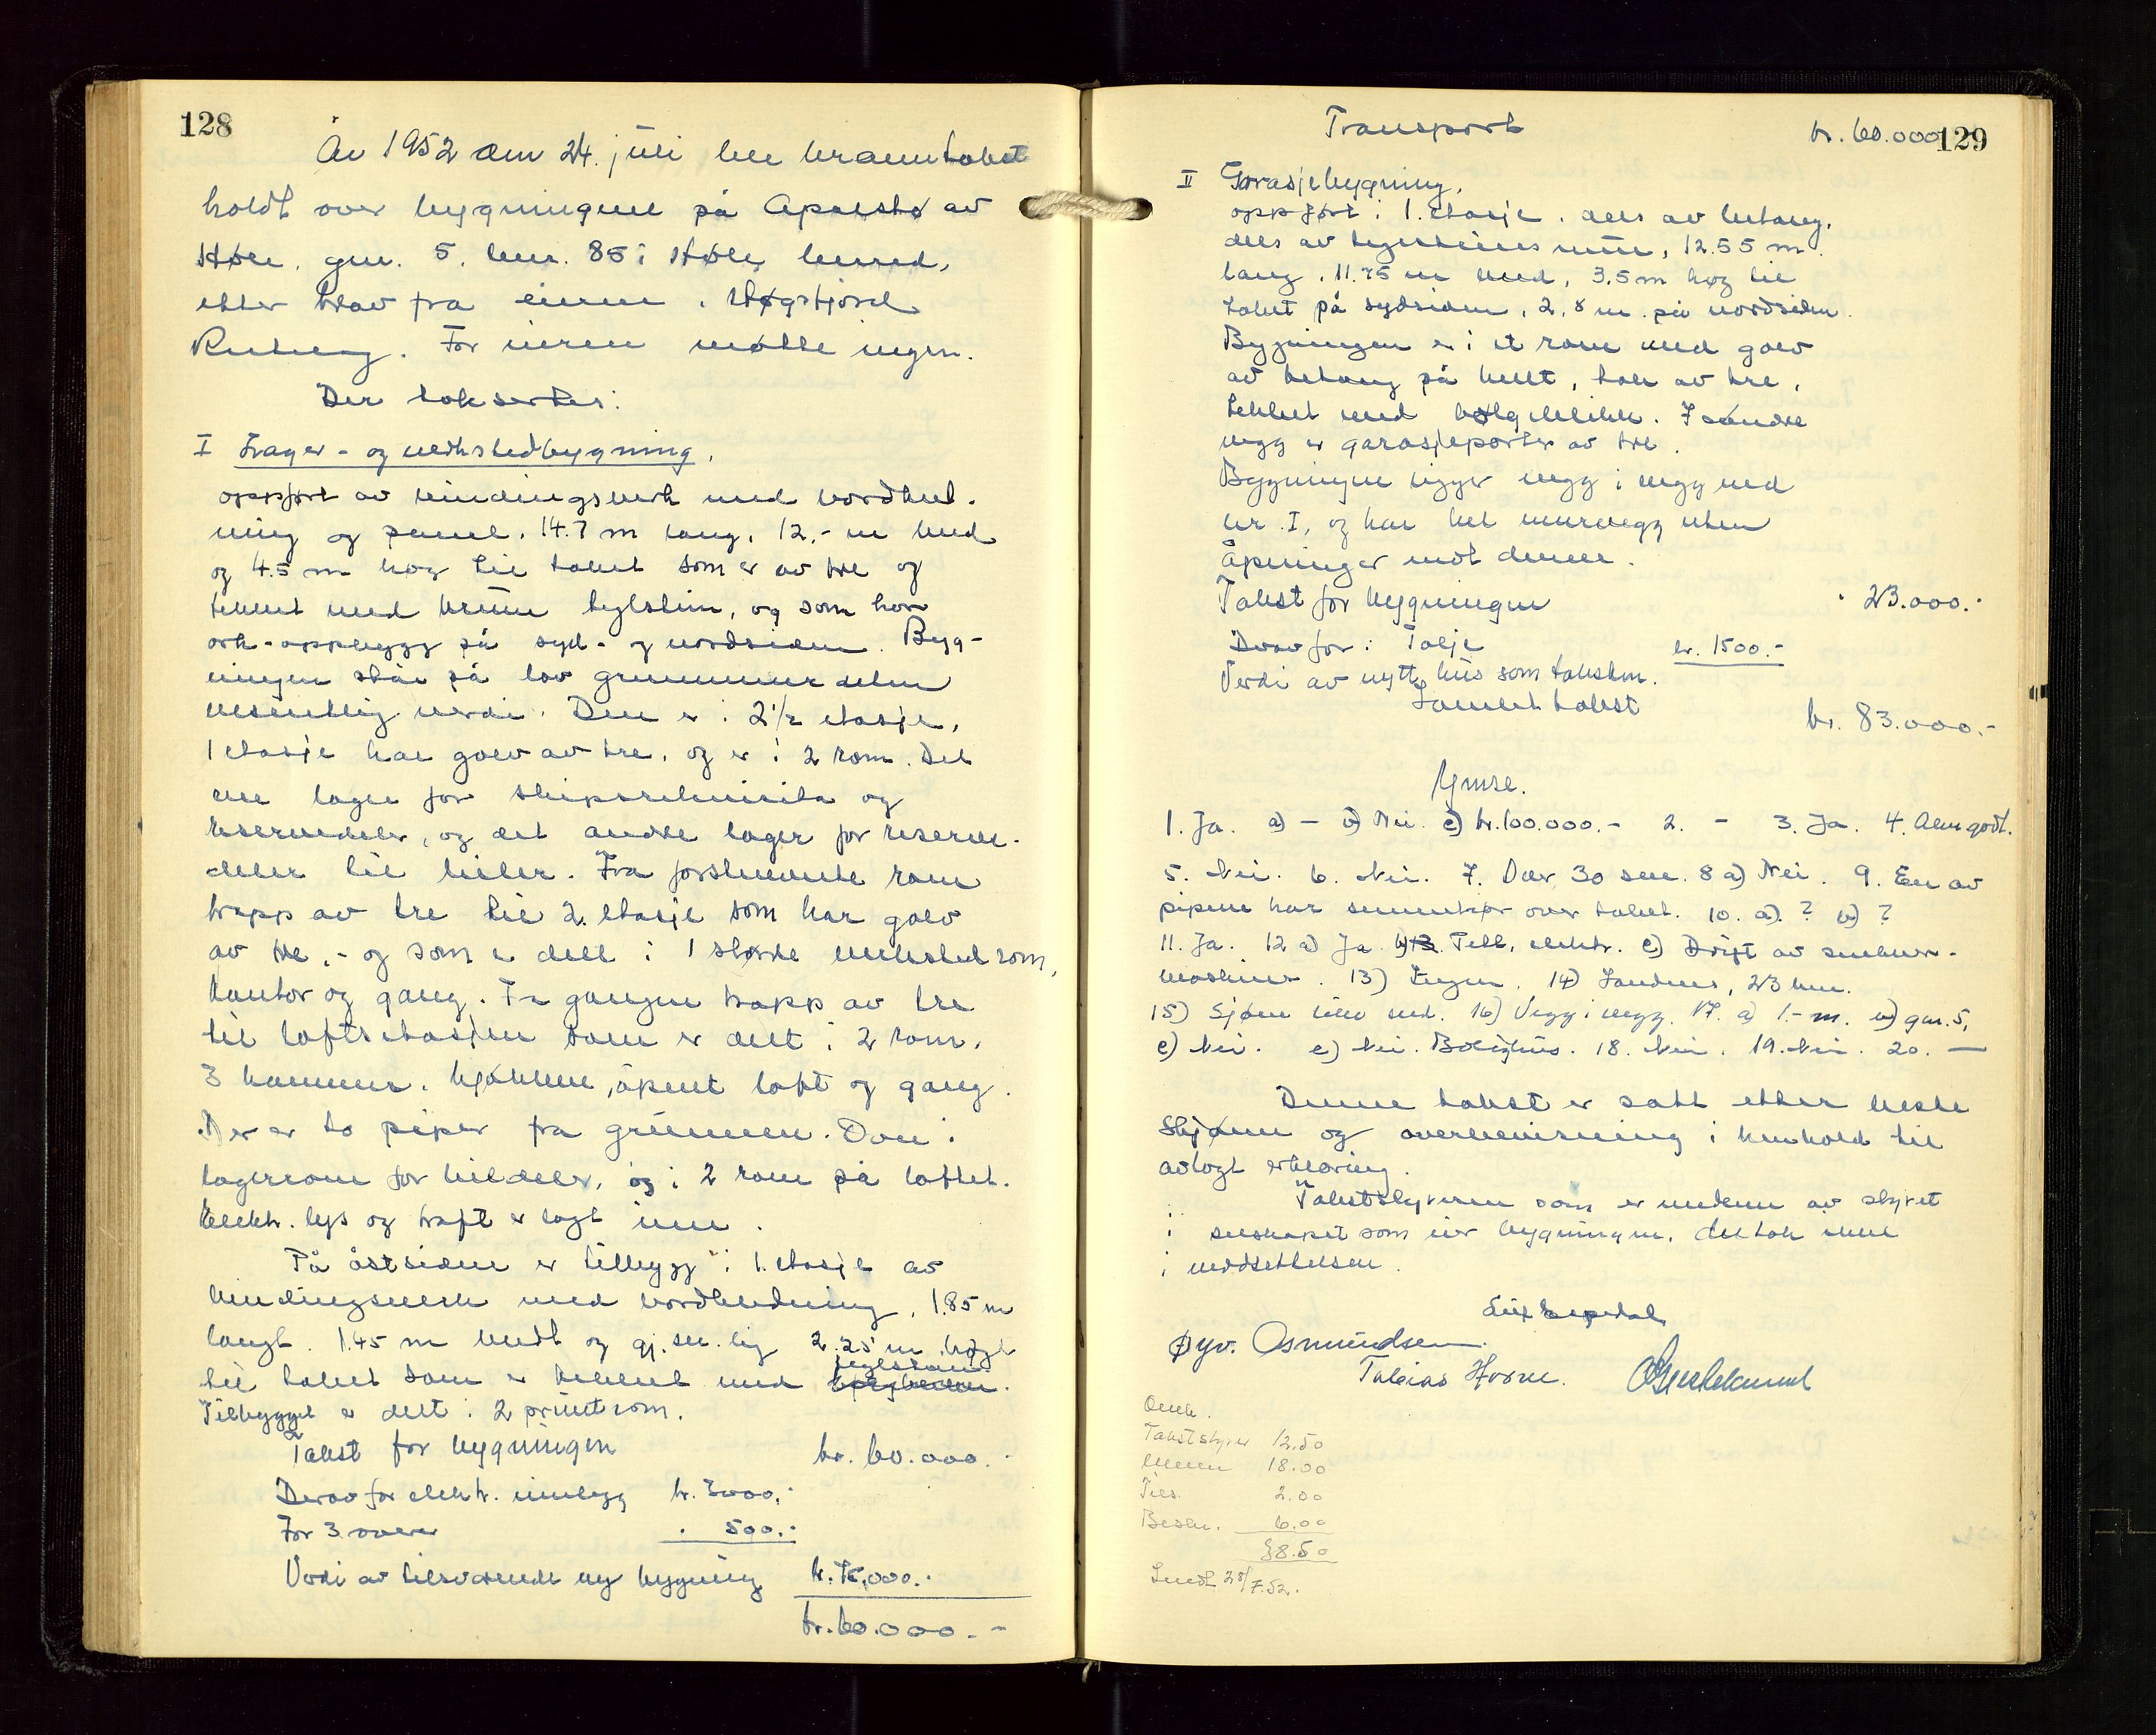 128
År 1952 den 24. juli ble branntakst
holdt over bygningene på Apalstø av
Høle, gnr. 5, bnr. 85 i Høle herred,
etter krav fra eieren, Høgsfjord
Rutelag. For eieren møtte ingen.
Der taksertes:
I Lager- og verkstedbygning,
oppført av bindingsverk med bordkled-
ning og panel, 14.7 m lang, 12,- m bred
og 4.5 m høg til taket som er av tre og
tekket med brune teglstein, og som har
ark-oppbygg på syd- og nordsiden. Byg-
ningen står på lav grunnmur uten
vesentlig verdi. Den er i 2 1/2 etasje,
1 etasje har golv av tre, og er i 2 rom. Det
ene lager for skipsrekvisita og
reservedeler, og det andre lager for reserve-
deler til biler. Fra førstnevnte rom
trapp av tre til 2. etasje som har golv
av tre, - og som er delt i 1 større verksted rom,
kontor og gang. Fra gangen trapp av tre
til loftsetasjen som er delt i 2 rom,
3 kammer, kjøkken, åpent loft og gang.
Der er to piper fra grunnen. Ovn i
lagerrom for bildeler, og i 2 rom på loftet.
Elektr. lys og kraft er lagt inn.
På østsiden er tilbygg i 1. etasje av
bindingsverk med bordkledning, 1.85 m
langt, 1.45 m bredt og gj.sn.lig 2.25 m høgt
teglstein
til taket som er tekket med
Tilbygget er delt i 2 privetrom.
Takst for bygningen kr. 60.000.-
Derav for elektr. innlegg kr. 3000,-
For 3 ovner " 500.-
Verdi av tilsvarende ny bygning kr. 75.000.-
kr. 60.000.-
Transport kr. 60.000 129
II Garasjebygning,
oppført i 1. etasje, dels av betong,
dels av teglsteins mur, 12.55 m.
lang, 11.75 m bred, 3.5 m høg til
taket på sydsiden, 2.8 m. på nordsiden.
Bygningen er i et rom med golv
av betong på kult, tak av tre,
tekket med bølgeblikk. I søndre
vegg er garasjeporter av tre.
Bygningen ligger vegg i vegg med
nr. I, og har hel murvegg uten
åpninger mot denne.
Takst for bygningen " 23.000.-
Derav for: Talje kr. 1500.-
Verdi av nytt hus som taksten.
Samlet takst kr. 83.000.-
Ymse.
1. Ja. a) - b) Nei. c) kr. 100.000.- 2. - 3. Ja. 4. Alm godt.
5. Nei. 6. Nei. 7. Over 30 cm. 8 a) Nei. 9. En av
pipene har sementrør over taket. 10. a). ? b) ?
11. Ja. 12 a) Ja b) Tekn. elektr. c) Drift av snekker-
maskiner. 13) Ingen. 14) Sandnes, 23 km.
15) Sjøen like ved. 16) Vegg i vegg. 17. a) 1.- m. b) gnr. 5,
c) Nei. e) Nei. Bolighus. 18. Nei. 19. Nei. 20. —
Denne takst er satt etter beste
skjønn og overbevisning i henhold til
avlagt erklæring.
Takstbestyreren som er medlem av styret
i selskapet som eier bygningen, deltok ikke
i verdsettelsen.
Øyv. Osmundsen.
Tobias Hovne.
Omk.
Takstbestyrer 12.50
Menn 18.00
Tils. 2.00
Beskr. 6.00
38.50
Sendt 28/7.52.